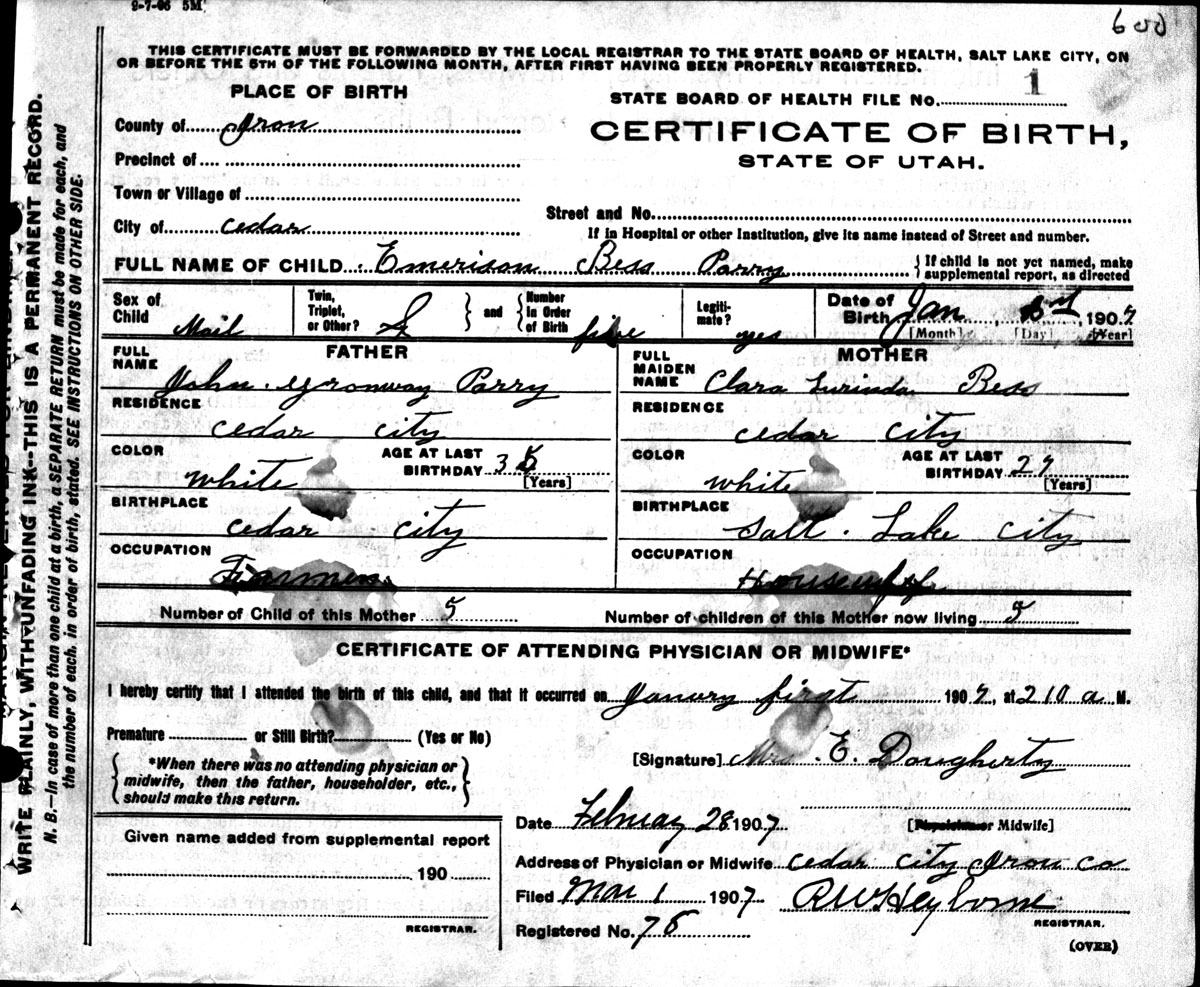 9-7-06 5M
600
THIS CERTIFICATE MUST BE FORWARDED BY THE LOCAL REGISTRAR TO THE STATE BOARD OF HEALTH, SALT LAKE CITY, ON
OR BEFORE THE 5TH OF THE FOLLOWING MONTH, AFTER FIRST HAVING BEEN PROPERLY REGISTERED.
PLACE OF BIRTH
STATE BOARD OF HEALTH FILE No. 1
County of Iron
CERTIFICATE OF BIRTH,
Precinct of
STATE OF UTAH.
Town or Village of
Street and No.
City of cedar
If in Hospital or other Institution, give its name instead of Street and number.
FULL NAME OF CHILD Emerison Bess Parry
{ If child is not yet named, make supplemental report, as directed
Sex of Child Mail
Twin, Triplet, or Other?
} and { Number In Order of Birth five
Legitimate? yes
Date of Birth Jan 1907
[Month] [Day] [Year]
FATHER
FULL NAME John Gronway Parry
RESIDENCE cedar city
COLOR white
AGE AT LAST BIRTHDAY 3
[Years]
BIRTHPLACE cedar city
OCCUPATION Farmer
MOTHER
FULL MAIDEN NAME Clara Lurinda Bess
RESIDENCE cedar city
COLOR white
AGE AT LAST BIRTHDAY 29
[Years]
BIRTHPLACE Salt Lake City
OCCUPATION Housewife
Number of Child of this Mother 5
Number of children of this Mother now living 5
CERTIFICATE OF ATTENDING PHYSICIAN OR MIDWIFE*
I hereby certify that I attended the birth of this child, and that it occurred on Janury first 1907, at 2 10 a M.
Premature or Still Birth? (Yes or No)
[Signature] Mrs. E. Dougherty
{ *When there was no attending physician or
midwife, then the father, householder, etc.,
should make this return. }
Date February 28 1907
[Physician or Midwife]
Given name added from supplemental report
190
REGISTRAR.
Address of Physician or Midwife cedar city Iron co
Filed Mar 1 1907
RW Heyborne
REGISTRAR.
Registered No. 78
(OVER)
WRITE PLAINLY, WITH UNFADING INK--THIS IS A PERMANENT RECORD.
N. B.—In case of more than one child at a birth, a SEPARATE RETURN must be made for each, and
the number of each, in order of birth, stated. SEE INSTRUCTIONS ON OTHER SIDE.